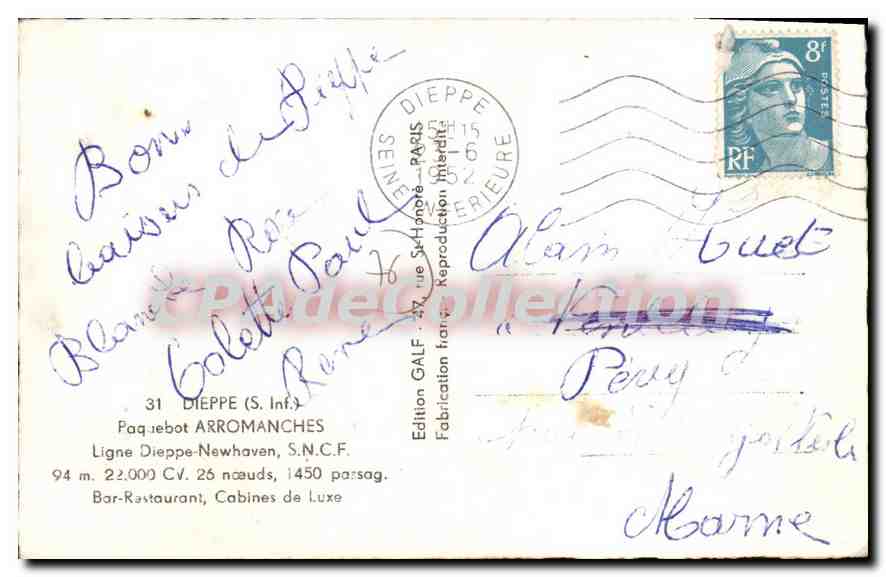 Bons
baisers de Dieppe
Blanche Rose
Colette Paul
René
76
31 DIEPPE (S. Inf.)
Paquebot ARROMANCHES
Ligne Dieppe-Newhaven, S.N.C.F.
94 m. 22.000 CV. 26 nœuds, 1450 passag.
Bar-Restaurant, Cabines de Luxe
Edition GALF - 47, rue St-Honoré - PARIS
Fabrication franç. Reproduction interdite
DIEPPE
15
-6
1952
SEINE INFERIEURE
8f
POSTES
RF
Alain
à
Pévy
Marne
CPAdeCollection